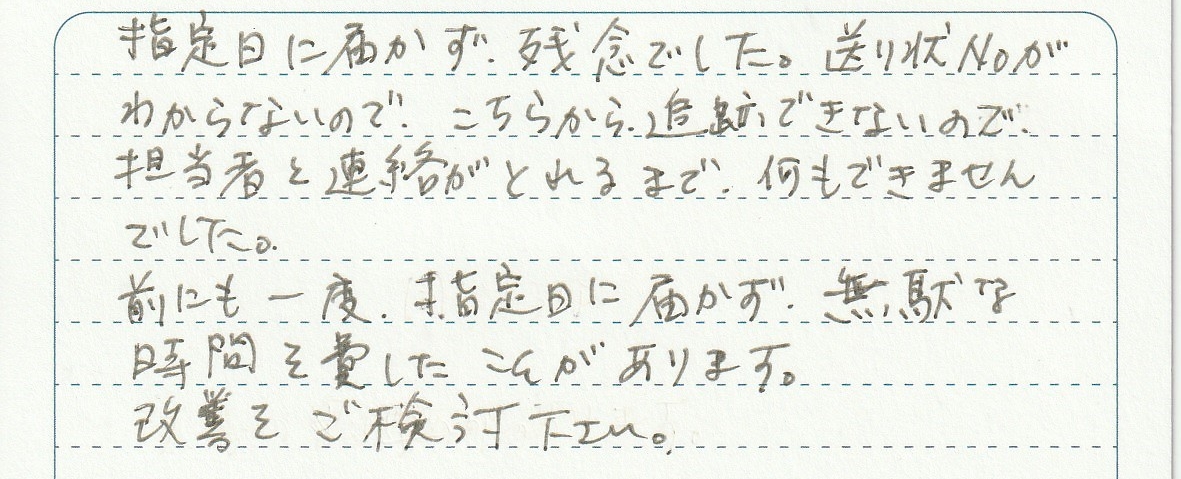 指定日に届かず、残念でした。送り状Noが
わからないので、こちらから追跡できないので、
担当者と連絡がとれるまで、何もできません
でした。
前にも一度、指定日に届かず、無駄な
時間を費したことがあります。
改善をご検討下さい。